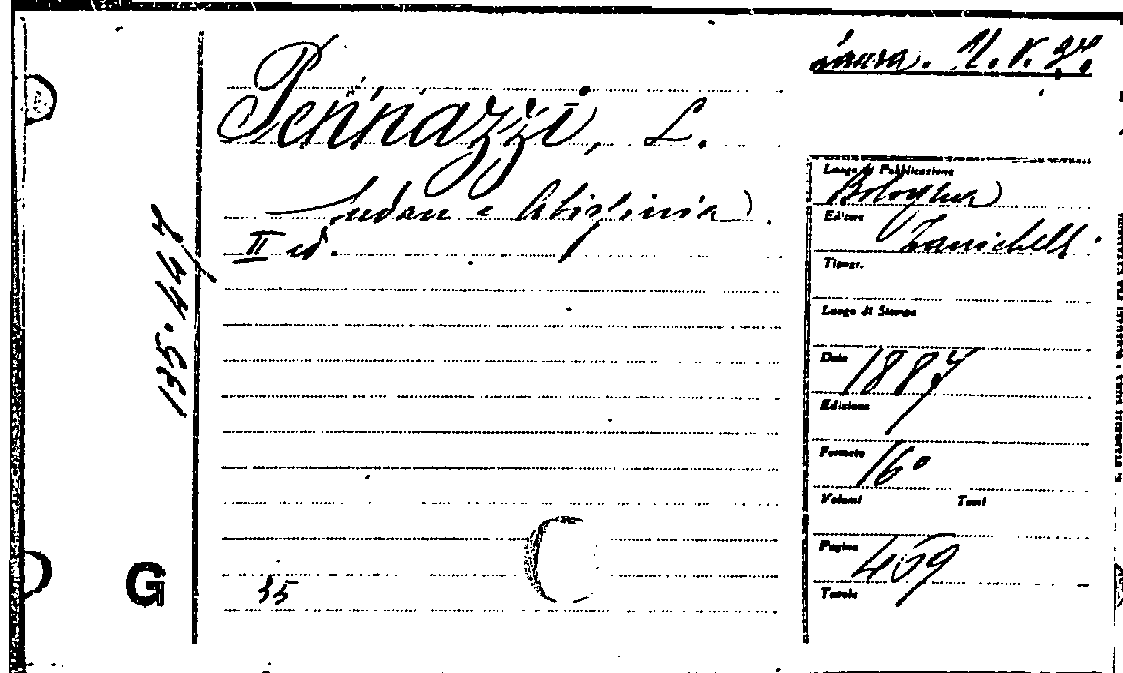 Pennazzi, L.
Sudan e Abissinia
II ed.
135.447
G
35
Luogo di Pubblicazione
Bologna
Editore
Zanichelli
Tipogr.
Luogo di Stampa
Data 1887
Edizione
Formato 16°
Volumi Tomi
Pagine 459
Tavole